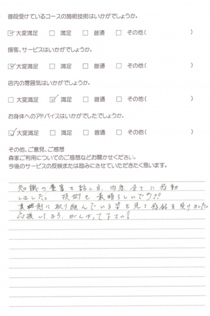 普段受けているコースの施術技術はいかがでしょうか。
☑大変満足 □満足 □普通 □その他( )
接客、サービスはいかがでしょうか。
☑大変満足 □満足 □普通 □その他( )
店内の雰囲気はいかがでしょうか。
□大変満足 ☑満足 □普通 □その他( )
お身体へのアドバイスはいかがでしたでしょうか。
☑大変満足 □満足 □普通 □その他( )
その他、ご意見、ご感想
森家ご利用についてのご感想などお聞かせください。
今後のサービスの反映または励みにさせていただきたく思います。
知識の豊富な話と
しました。技術も素晴らしいです!!
真剣に取り組んでいる姿を見て
応援しています。がんばって下さい。